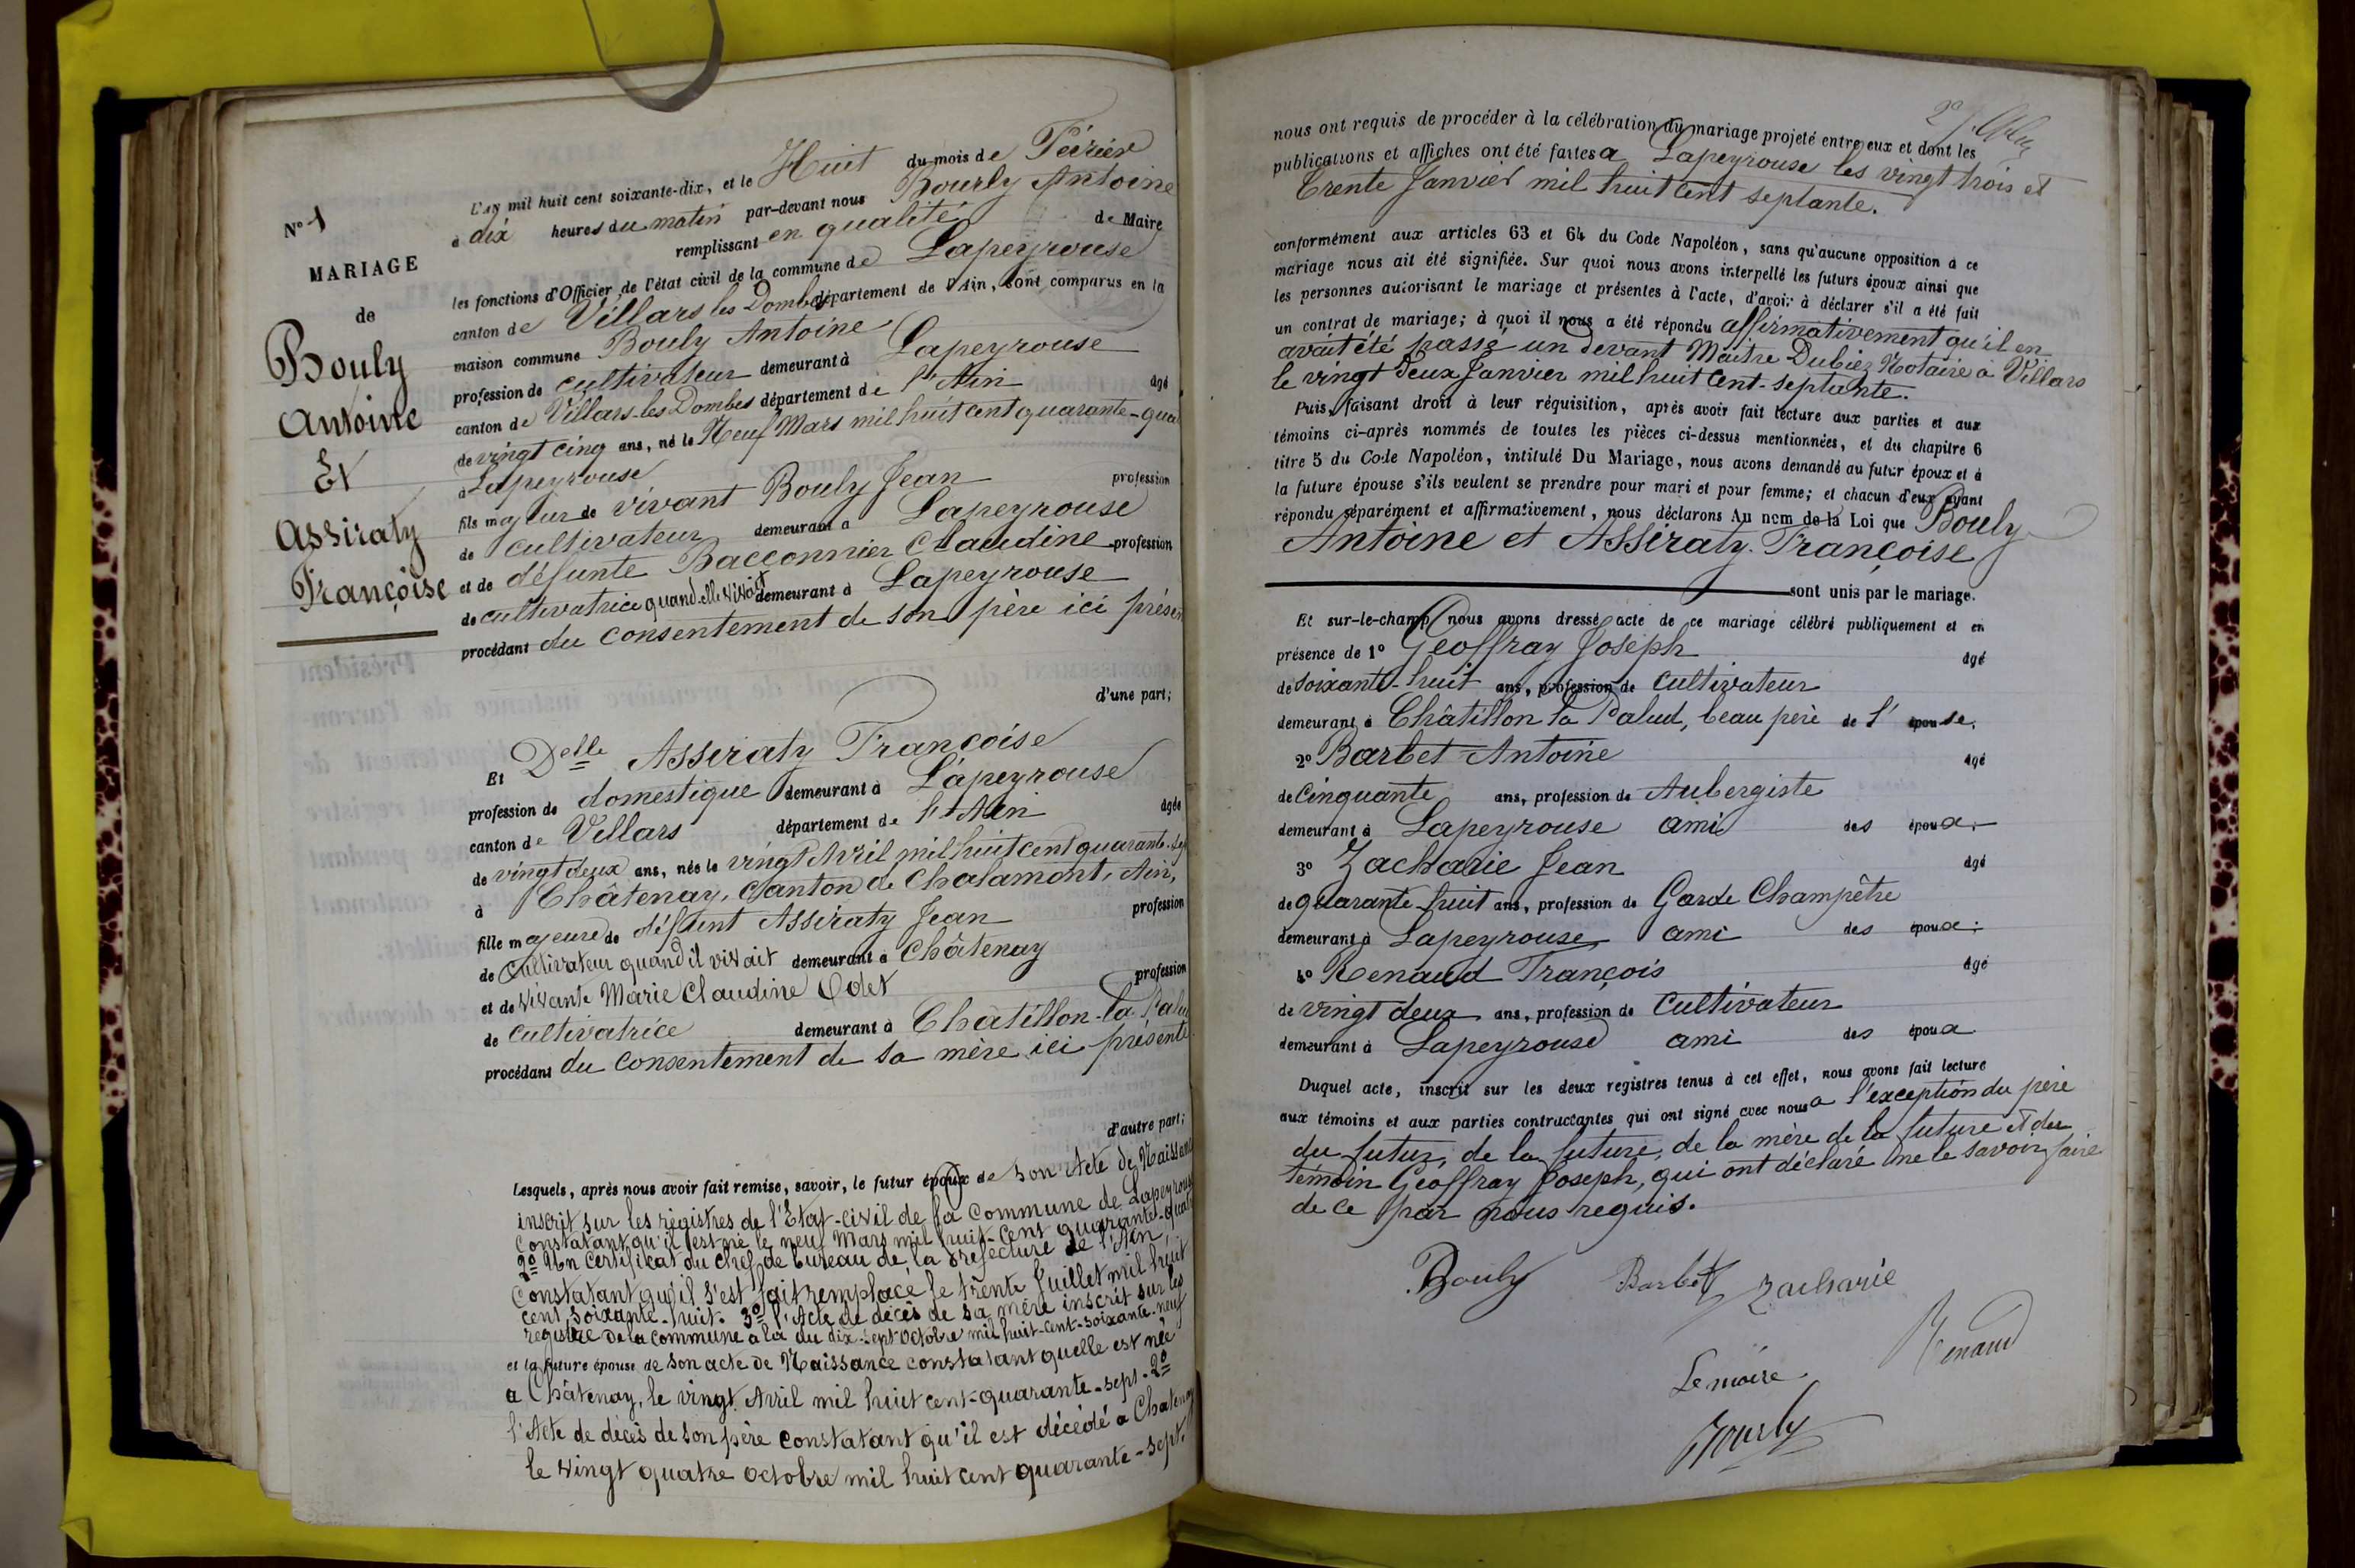 N° 1
MARIAGE
de
Bouly
Antoine
Et
Assiraty
Françoise
L'an mil huit cent soixante-dix, et le Huit du mois de Février
à dix heures du matin par-devant nous Bourly Antoine
remplissant en qualité de Maire
les fonctions d'Officier de l'état civil de la commune de Lapeyrouse
canton de Villars les Dombes département de l'Ain, sont comparus en la
maison commune Bouly Antoine
profession de cultivateur demeurant à Lapeyrouse
canton de Villars-les-Dombes département de l'Ain âgé
de vingt cinq ans, né le Neuf Mars mil huit cent quarante-qua
à Lapeyrouse
fils majeur de vivant Bouly Jean profession
de cultivateur demeurant à Lapeyrouse
et de défunte Bacconnier Claudine profession
de cultivatrice quand elle vivait demeurant à Lapeyrouse
procédant du consentement de son père ici présen
d'une part;
Et Delle Assiraty Françoise
profession de domestique demeurant à Lapeyrouse
canton de Villars département de l'Ain âgée
de vingt deux ans, née le vingt Avril mil huit cent quarante-sept
à Châtenay, Canton de Chalamont, Ain,
fille majeure de défunt Assiraty Jean profession
de Cultivateur quand il vivait demeurant à Châtenay
et de vivante Marie Claudine Odet profession
de cultivatrice demeurant à Châtillon-la-Palu
procédant du consentement de sa mère ici présente
d'autre part;
Lesquels, après nous avoir fait remise, savoir, le futur époux de son Acte de Naissan
inscrit sur les registres de l'Etat-civil de la Commune de Lapeyrous
Constatant qu'il est né le neuf Mars mil huit-cent quarante-quat
2° Un Certifikat du Chef de bureau de la Préfecture de l'Ain,
Constatant qu'il s'est fait remplacé le trente Juillet mil huit
cent soixante-huit. 3° l'Acte de décès de sa mère inscrit sur les
registre de la commune a la du dix-sept octobre mil huit-cent-soixante-neuf
et la future épouse de son acte de Naissance constatant quelle est née
a Châtenay, le vingt Avril mil huit cent-quarante-sept-2°
l'Acte de décès de son père constatant qu'il est décédé a Chatenay
le vingt quatre octobre mil huit cent quarante-sept.
nous ont requis de procéder à la célébration du mariage projeté entre eux et dont les
publications et affiches ont été faites a Lapeyrouse les vingt trois et
trente Janvier mil huit cent septante.
conformément aux articles 63 et 64 du Code Napoléon, sans qu'aucune opposition à ce
mariage nous ait été signifiée. Sur quoi nous avons interpellé les futurs époux ainsi que
les personnes autorisant le mariage et présentes à l'acte, d'avoir à déclarer s'il a été fait
un contrat de mariage; à quoi il nous a été répondu affirmativement qu'il en
avait été passé un devant Maître Dubiez Notaire a Villars
le vingt deux Janvier mil huit Cent-septante.
Puis, faisant droit à leur réquisition, après avoir fait lecture aux parties et aux
témoins ci-après nommés de toutes les pièces ci-dessus mentionnées, et du chapitre 6
titre 5 du Code Napoléon, intitulé Du Mariage, nous avons demandé au futur époux et à
la future épouse s'ils veulent se prendre pour mari et pour femme; et chacun d'eux ayant
répondu séparément et affirmativement, nous déclarons Au nom de la Loi que Bouly
Antoine et Assiraty Françoise
sont unis par le mariage.
Et sur-le-champ nous avons dressé acte de ce mariage célébré publiquement et en
présence de 1° Geoffray Joseph âgé
de soixante-huit ans, profession de cultivateur
demeurant à Châtillon la Palud, beau père de l'épouse.
2° Barbet Antoine âgé
de Cinquante ans, profession de Aubergiste
demeurant à Lapeyrouse ami des époux;
3° Zacharie Jean âgé
de quarante-huit ans, profession de Garde Champêtre
demeurant à Lapeyrouse ami des époux;
4° Renaud François âgé
de vingt deux ans, profession de Cultivateur
demeurant à Lapeyrouse ami des époux
Duquel acte, inscrit sur les deux registres tenus à cet effet, nous avons fait lecture
aux témoins et aux parties contractantes qui ont signé avec nous a l'exception du père
du futur, de la future, de la mère de la future et du
témoin Geoffray Joseph, qui ont déclaré ne le savoir faire
de ce par nous requis.
Bouly Barbet Zacharie
Renaud
Le maire
Bourly